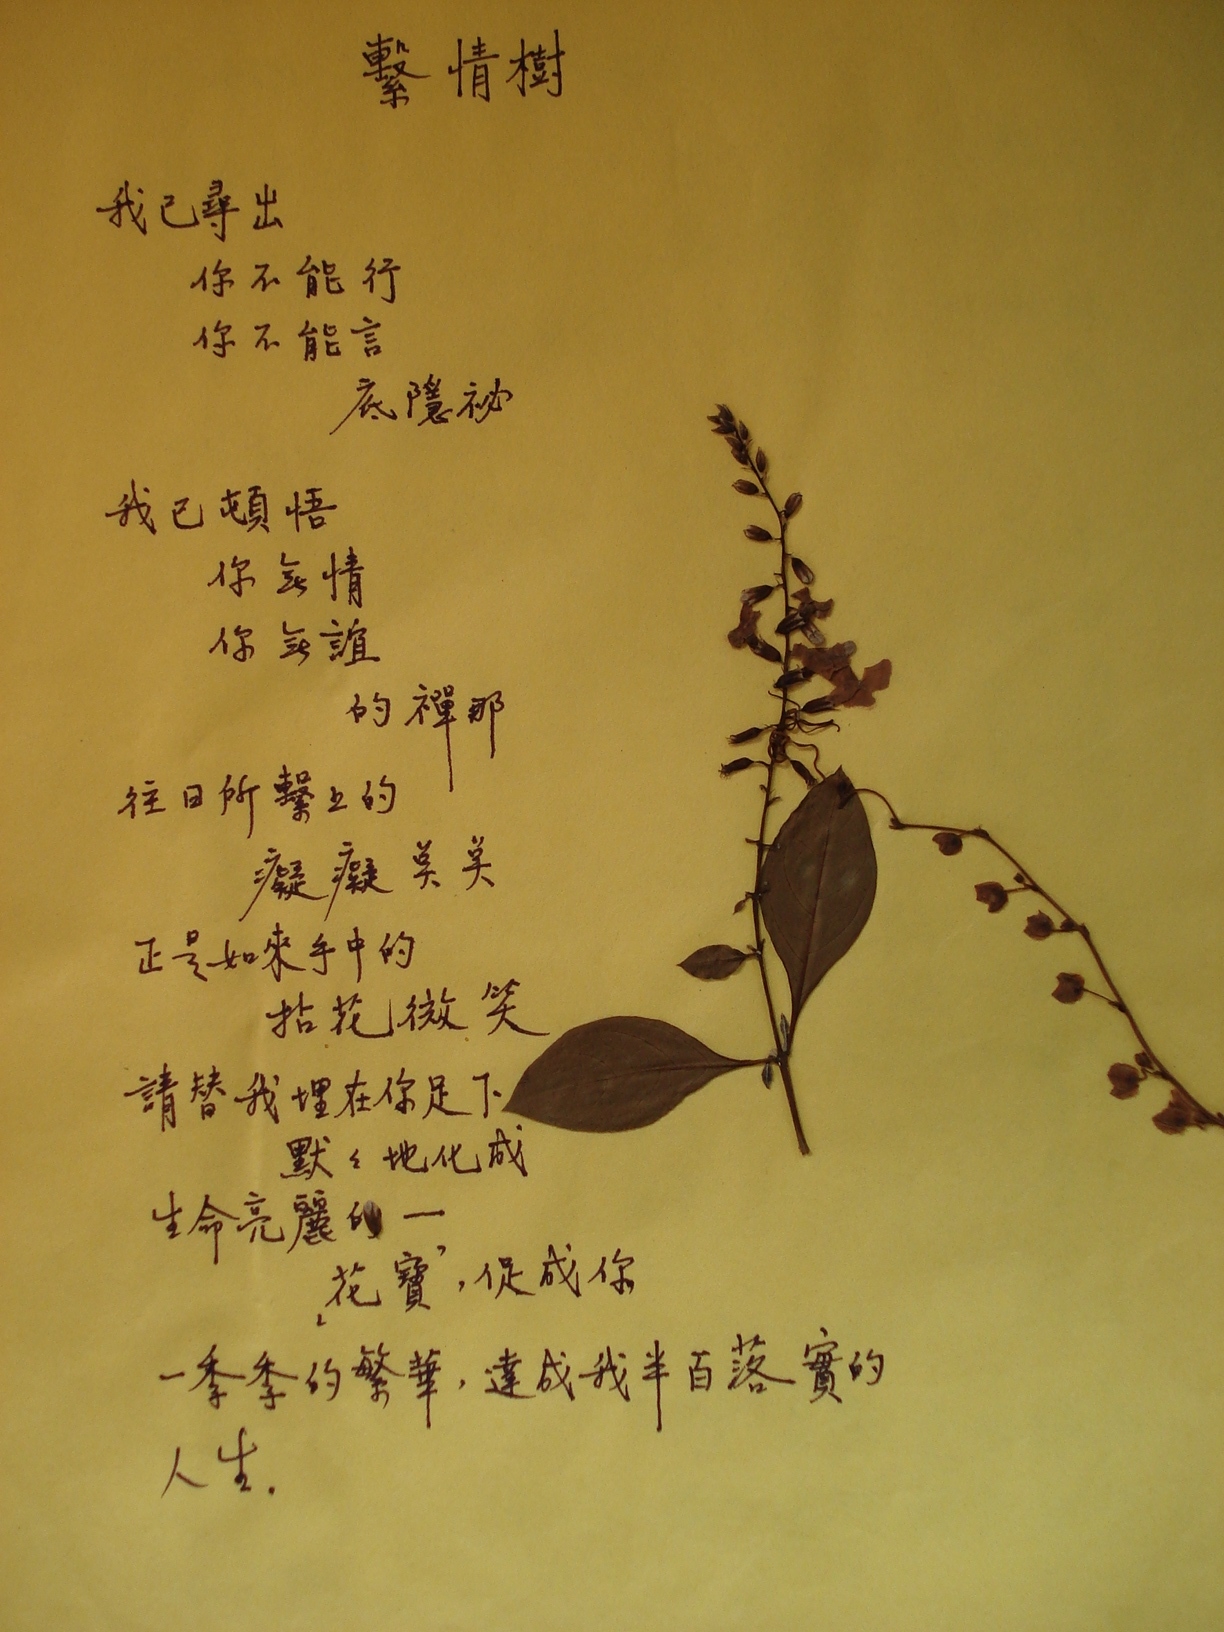 繫情樹
我已尋出
你不能行
你不能言
底隱祕
我已頓悟
你無情
你無誼
的禪那
往日所繫上的
癡癡莫莫
正是如來手中的
拈花微笑
請替我埋在你足下
默々地化成
生命亮麗的一
花寶，促成你
一季季的繁華，達成我半百落實的
人生.